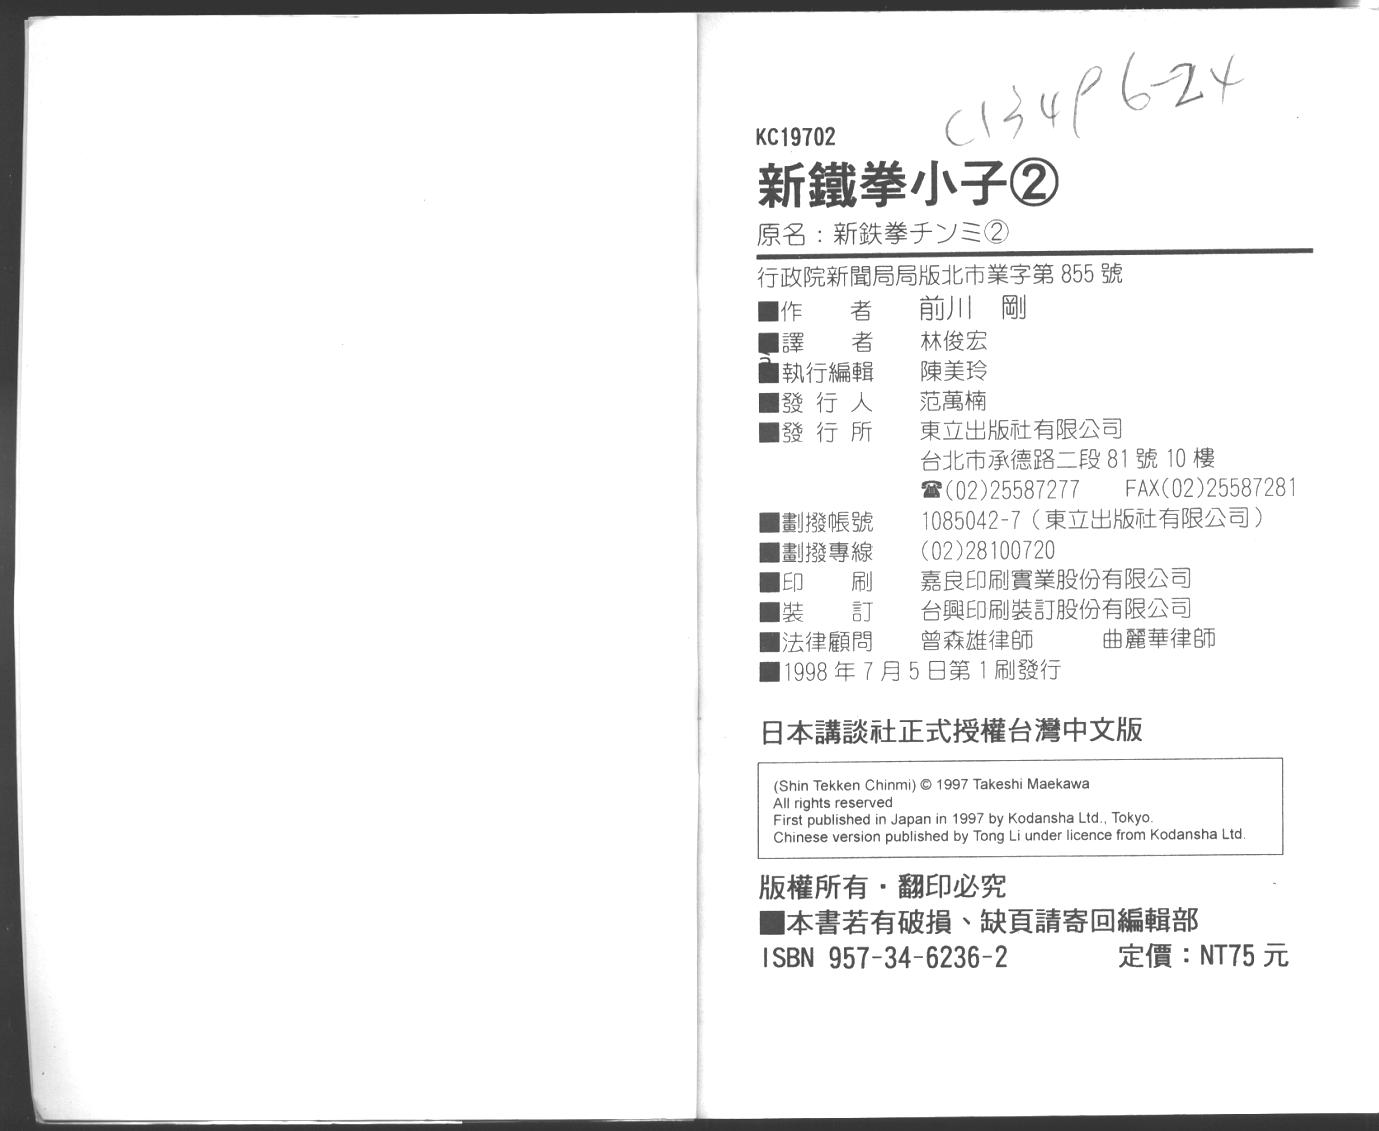 C1349 6-24
KC19702
新鐵拳小子②
原名：新鉄拳チンミ②
行政院新聞局局版北市業字第 855 號
■作　　者　前川　剛
■譯　　者　林俊宏
■執行編輯　陳美玲
■發 行 人　范萬楠
■發 行 所　東立出版社有限公司
台北市承德路二段 81 號 10 樓
☎(02)25587277　FAX(02)25587281
■劃撥帳號　1085042-7（東立出版社有限公司）
■劃撥專線　(02)28100720
■印　　刷　嘉良印刷實業股份有限公司
■裝　　訂　台興印刷裝訂股份有限公司
■法律顧問　曾森雄律師　曲麗華律師
■1998 年 7 月 5 日第 1 刷發行
日本講談社正式授權台灣中文版
(Shin Tekken Chinmi) © 1997 Takeshi Maekawa
All rights reserved
First published in Japan in 1997 by Kodansha Ltd., Tokyo.
Chinese version published by Tong Li under licence from Kodansha Ltd.
版權所有・翻印必究
■本書若有破損、缺頁請寄回編輯部
ISBN 957-34-6236-2　定價：NT75 元